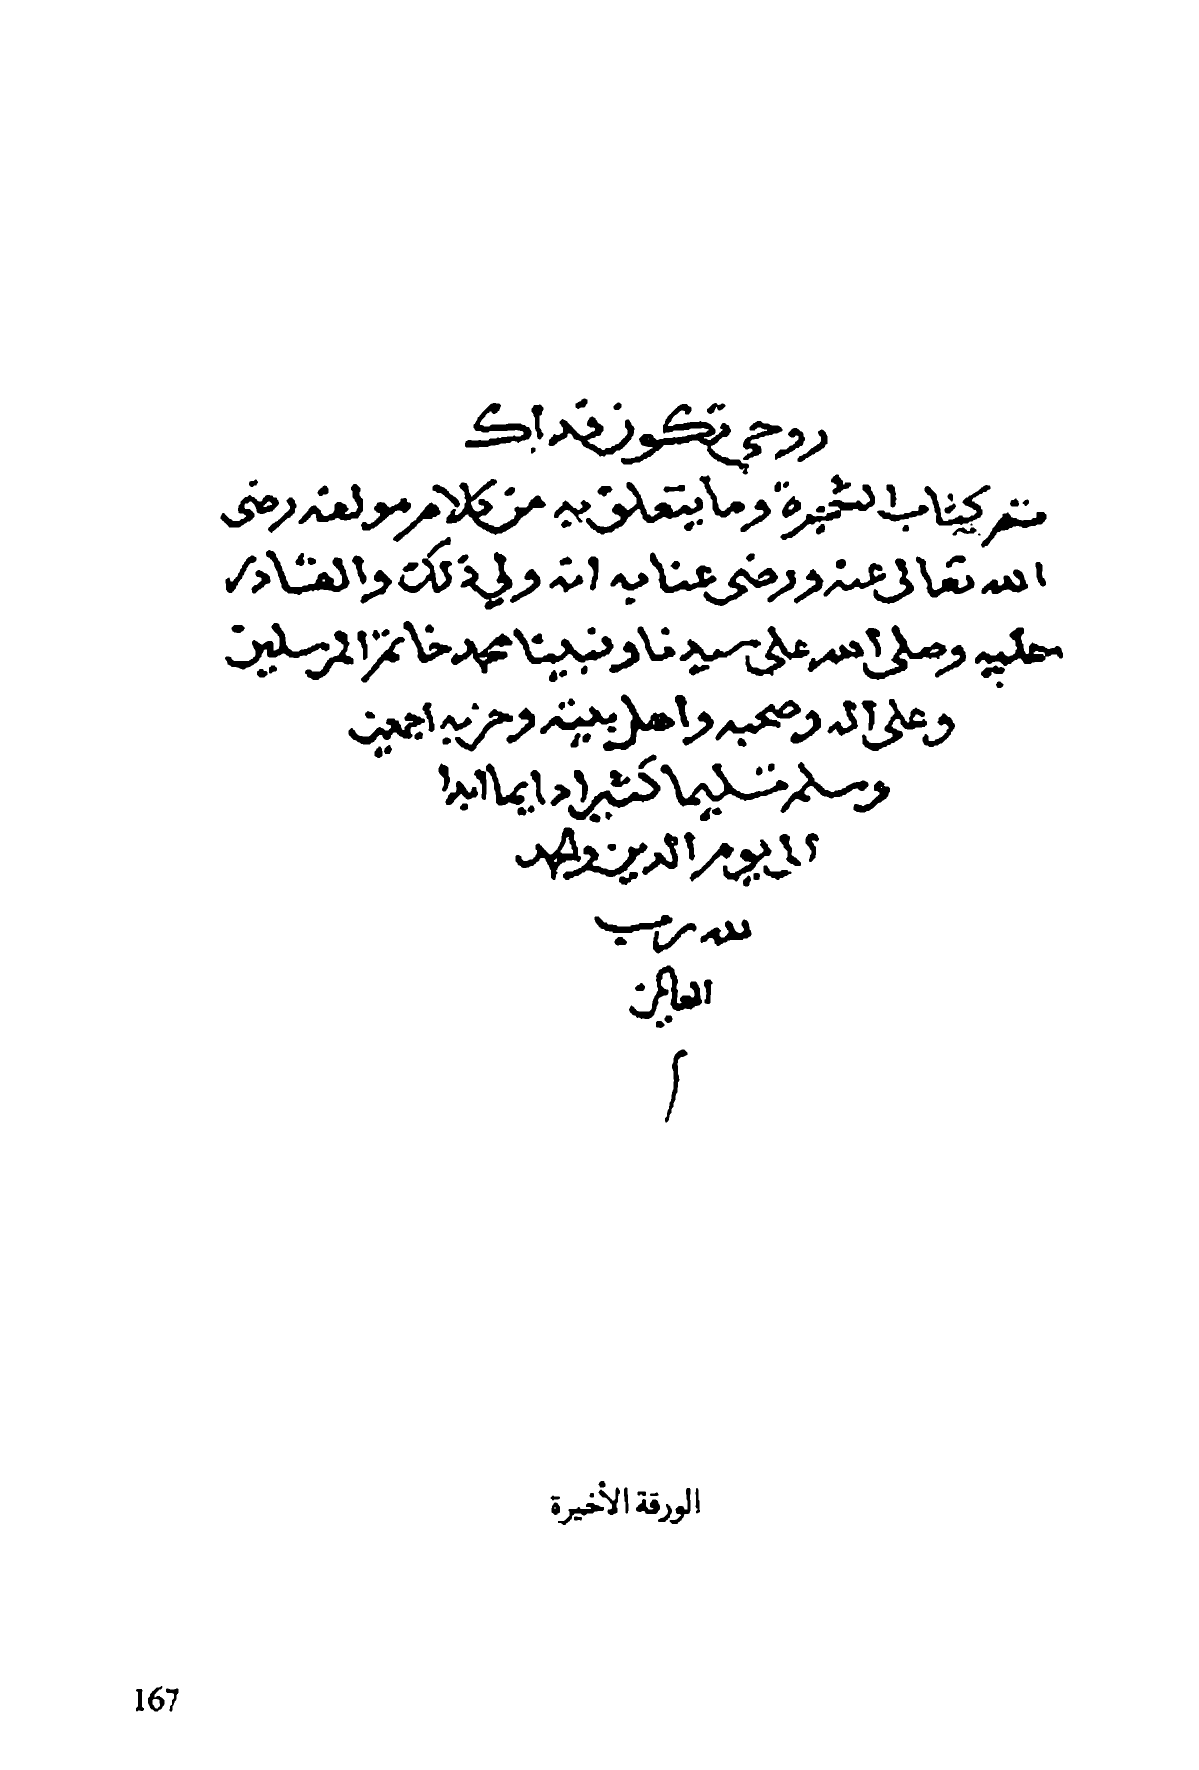 روحي تكون فداك
تم كتاب الشجرة وما يتعلق به من كلام مولفه رضى
الله تعالى عنه ورضى عنا به انه ولي ذلك والقادر
عليه وصلى الله على سيدنا ونبينا محمد خاتم المرسلين
وعلى آله وصحبه واهل بيته وحزبه اجمعين
وسلم تسليما كثيرا دايما ابدا
الى يوم الدين والحمد
لله رب
العالمين
الورقة الأخيرة
167